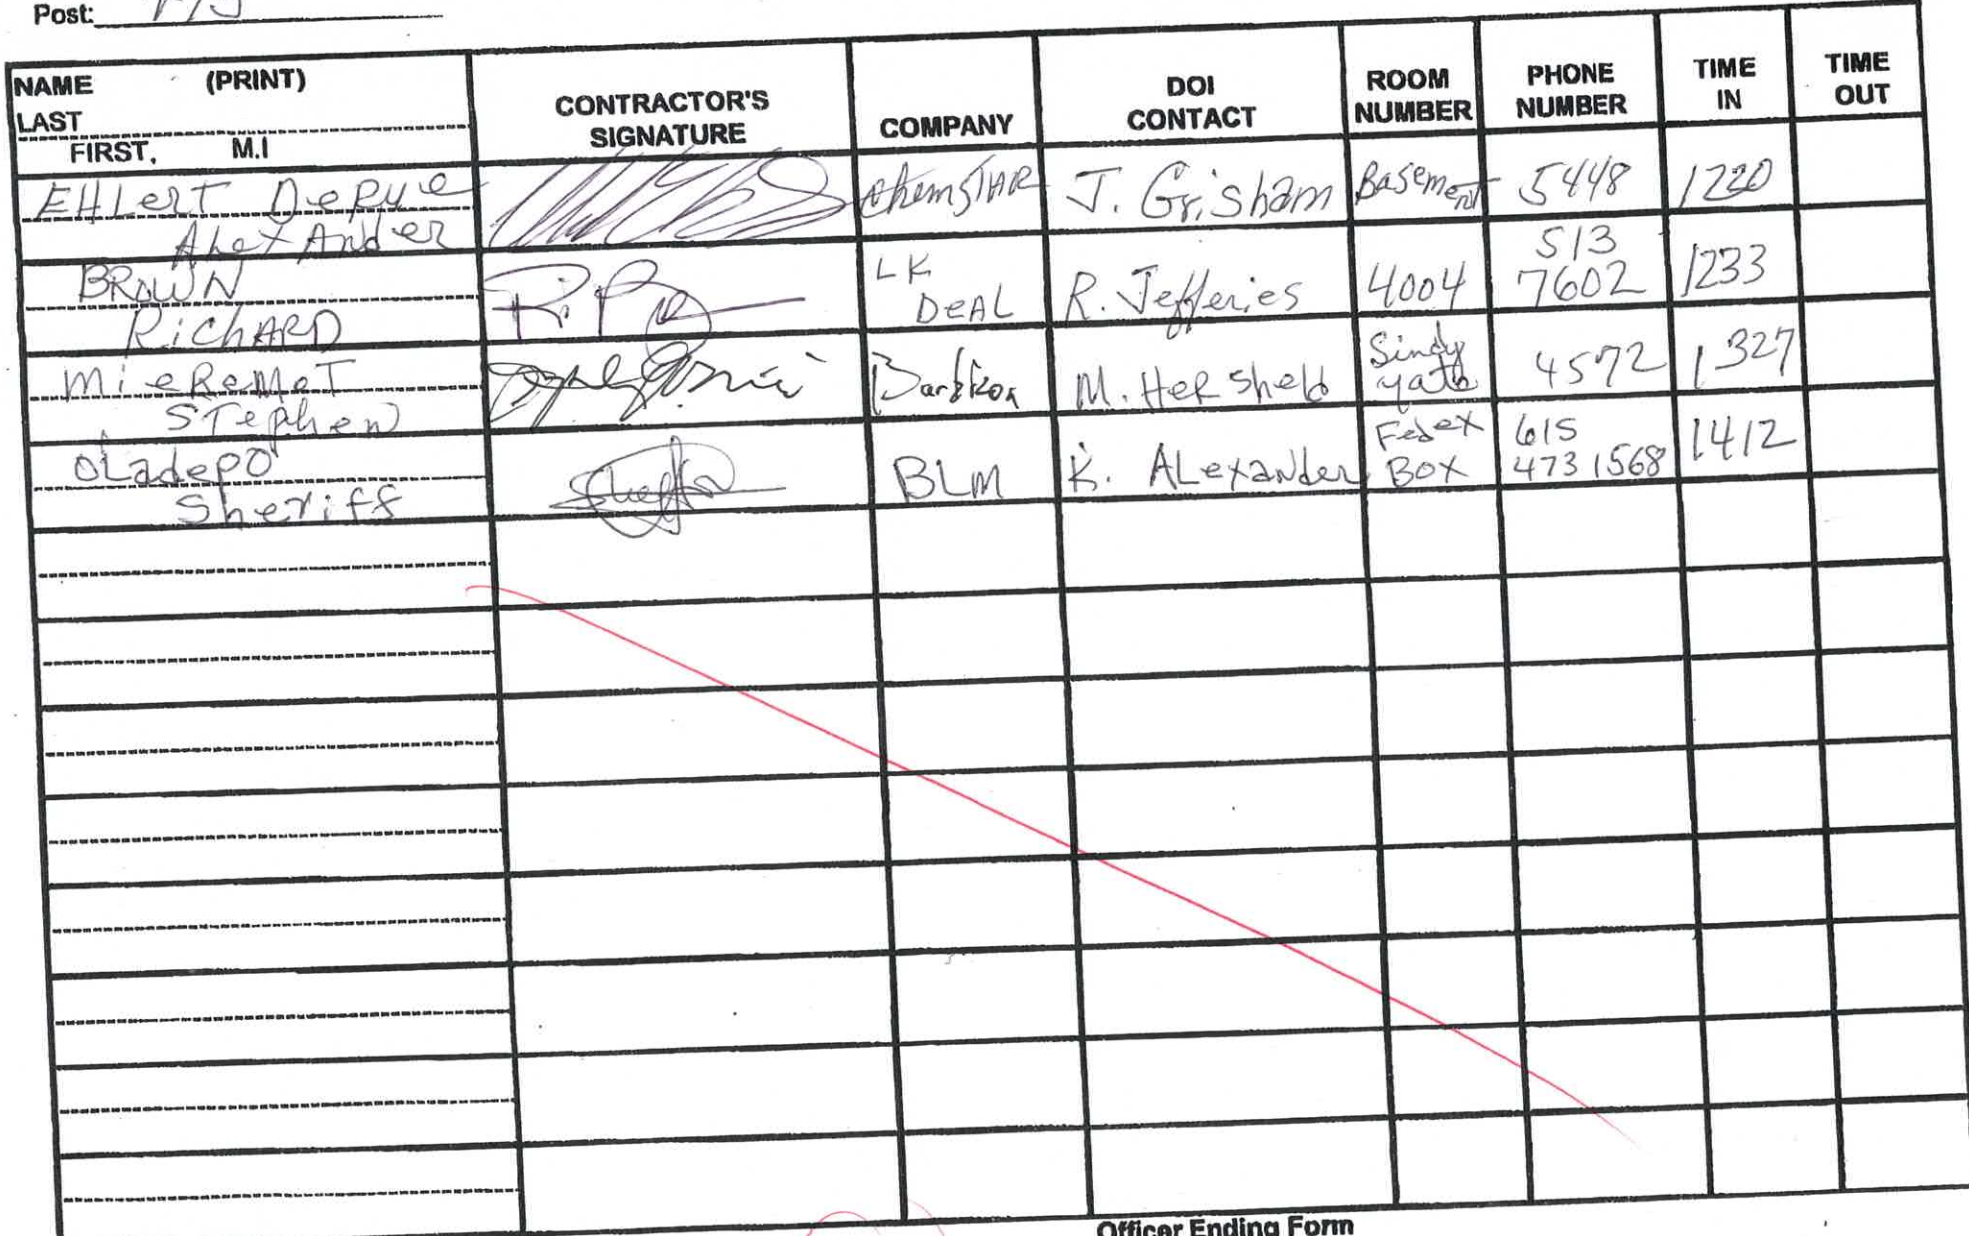 Post:
NAME (PRINT)
LAST
FIRST, M.I
CONTRACTOR'S
SIGNATURE
COMPANY
DOI
CONTACT
ROOM
NUMBER
PHONE
NUMBER
TIME
IN
TIME
OUT
EHLerT DePue
AlexAnder
ChemSTAR
J. Grisham
Basement
5448
1220
BROWN
RiCHARD
LK
DEAL
R. Jefferies
4004
513
7602
1233
MieReMeT
STephen
M. HerSheld
Sindy
4572
1327
OLadepo
Sheriff
BLM
K. ALexander
Fedex
Box
615
473 1568
1412
Officer Ending Form